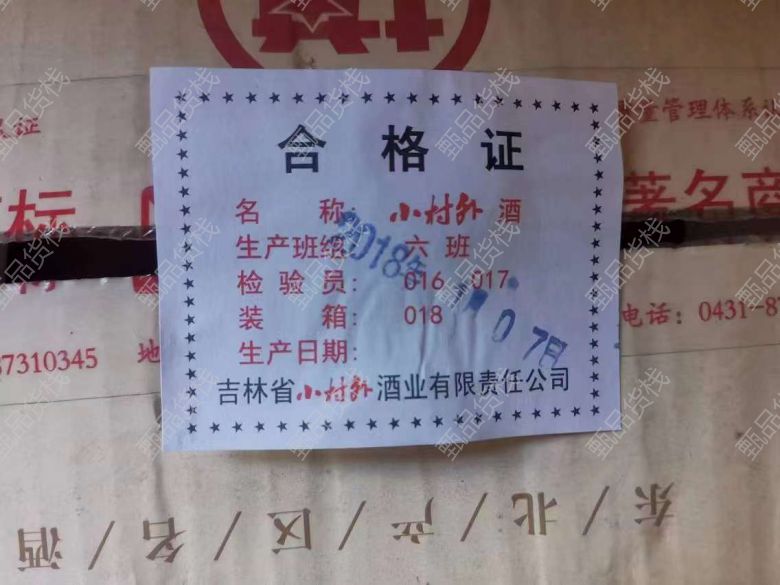 合格证
名称：小村外酒
生产班组：六班
检验员：016 017
装箱：018
生产日期：
2018年 月07日
吉林省小村外酒业有限责任公司
证
量管理体系认
标
著名商
87310345 地
电话：0431-8
东/北/产/区/名/酒
甄品货栈